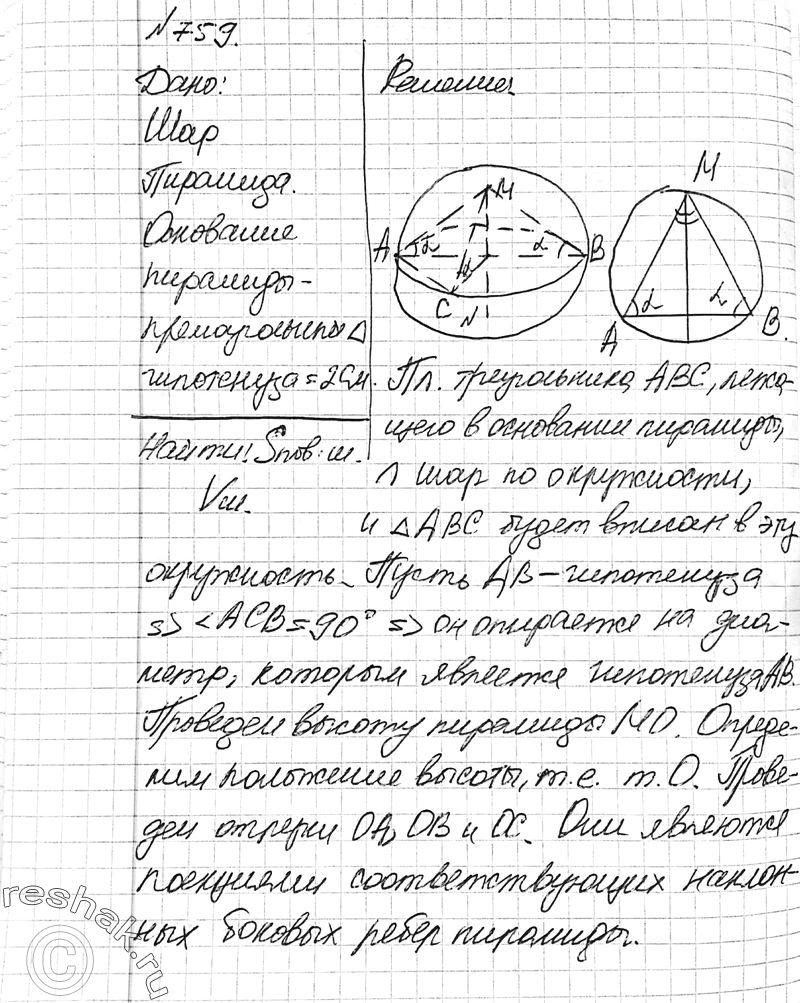 №759.
Дано:
Шар
Пирамида.
Основание
пирамиды-
прямоугольный Δ
гипотенуза = 2см.
Найти: Sпов.ш.
Vш.
Решение
M
A α α B
α
C N
M
α α
A B.
Пл. треугольника ABC, лежа-
щего в основании пирамиды,
∩ шар по окружности,
и ΔABC будет вписан в эту
окружность. Пусть AB – гипотенуза
=> <ACB = 90° => он опирается на диа-
метр, которым является гипотенуза AB.
Проведем высоту пирамиды MO. Опреде-
лим положение высоты, т.е. т. O. Прове-
дем отрезки OA, OB и OC. Они являются
проекциями соответствующих наклон-
ных боковых ребер пирамиды.
reshak.ru
©